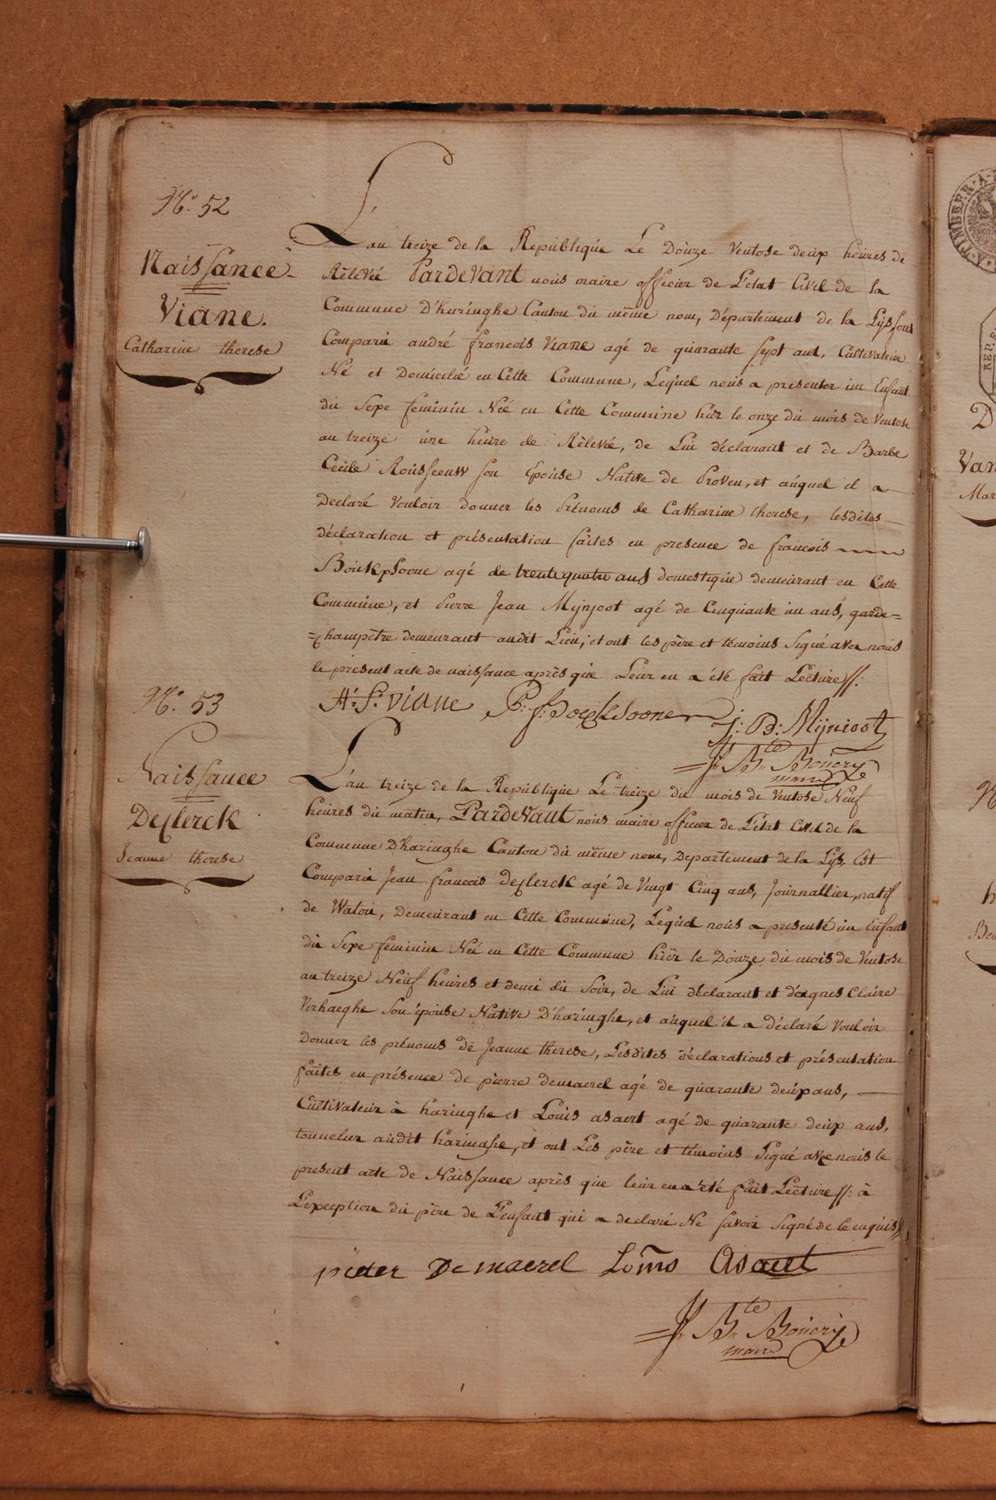 N.º 52
Naissance
Viane.
Catharine therese
L'au treize de la Republique Le Douze Ventose deux heures de
Rélévé Pardevant nous maire officier de L'etat Civil de la
Commune D'haringhe Canton du même nom, Département de la Lijs sont
Comparu andré francois Viane agé de quarante sept ans, Cultivateur
Né et Domicilié en Cette Commune, Lequel nous a presenter un Enfant
du Sexe feminin Née en Cette Commune hiër le onze du mois de Ventose
au treize une heure de Rélévé, de Lui déclarant et de Barbe
Cecile Rousseeuw son Epouse Native de Proven, et auquel il a
Declaré Vouloir donner les Prénoms de Catharine therese, lesdites
déclaration et présentation faites en presence de francois
Bouckesoone agé de trente quatre ans domestique demeurant en Cette
Commune, et Pierre Jean Mijnjoot agé de Cinquante un ans, garde=
=champêtre demeurant audit Lieu, et ont les père et témoins Signé avec nous
le present acte de naissance après que Leur en a été fait Lecture //.
A: F: Viane P: f: Bouckesoone
J: B: Mijnioot
J B.te Boüery
maire
N.º 53
Naissance
Declerck
Jeanne therese
L'au treize de la République Le treize du mois de Ventose Neuf
heures du matin, Pardevant nous maire officier de L'état Civil de la
Commune D'haringhe Canton du même nom, Departement de la Lijs Est
Comparu Jean francois Declerck agé de Vingt Cinq ans, Journallier, natif
de Watou, Demeurant en Cette Commune, Lequel nous a presenté un Enfant
du Sexe feminin Née en Cette Commune hiër le Douze du mois de Ventose
au treize Neuf heures et demi du Soir, de Lui déclarant et d'agnes Claire
Verhaeghe Son épouse Native D'haringhe, et auquel il a déclaré vouloir
donner les prénoms de Jeanne therese, Lesdites déclarations et présentation
faites en présence de pierre demaerel agé de quarante deux ans,
Cultivateur à haringhe et Louis asaert agé de quarante deux ans,
tonnelier audit haringhe, et ont Les père et témoins Signé avec nous le
present acte de Naissance après que leur en a été fait Lecture //: à
L'exception du père de L'enfant qui a declaré Ne savoir Signé de le enquis //
pieter Demaerel Lowis Asaert
J B.te Boüery
maire
TIMBRE
REP.
D
Van
Mar